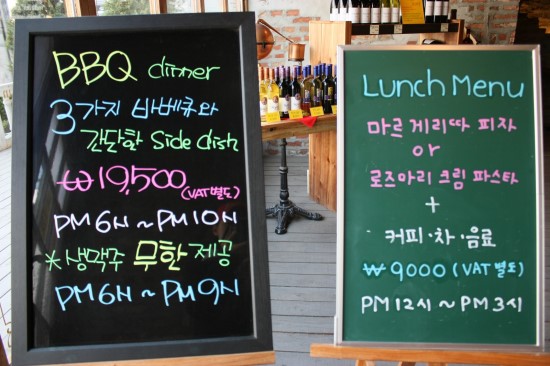 BBQ dinner
3가지 바베큐와
간단한 Side dish
₩19,500 (VAT별도)
PM 6시 ~ PM 10시
* 생맥주 무한 제공
PM 6시 ~ PM 9시
Lunch Menu
마르게리따 피자
or
로즈마리 크림 파스타
+
커피·차·음료
₩ 9000 (VAT 별도)
PM 12시 ~ PM 3시